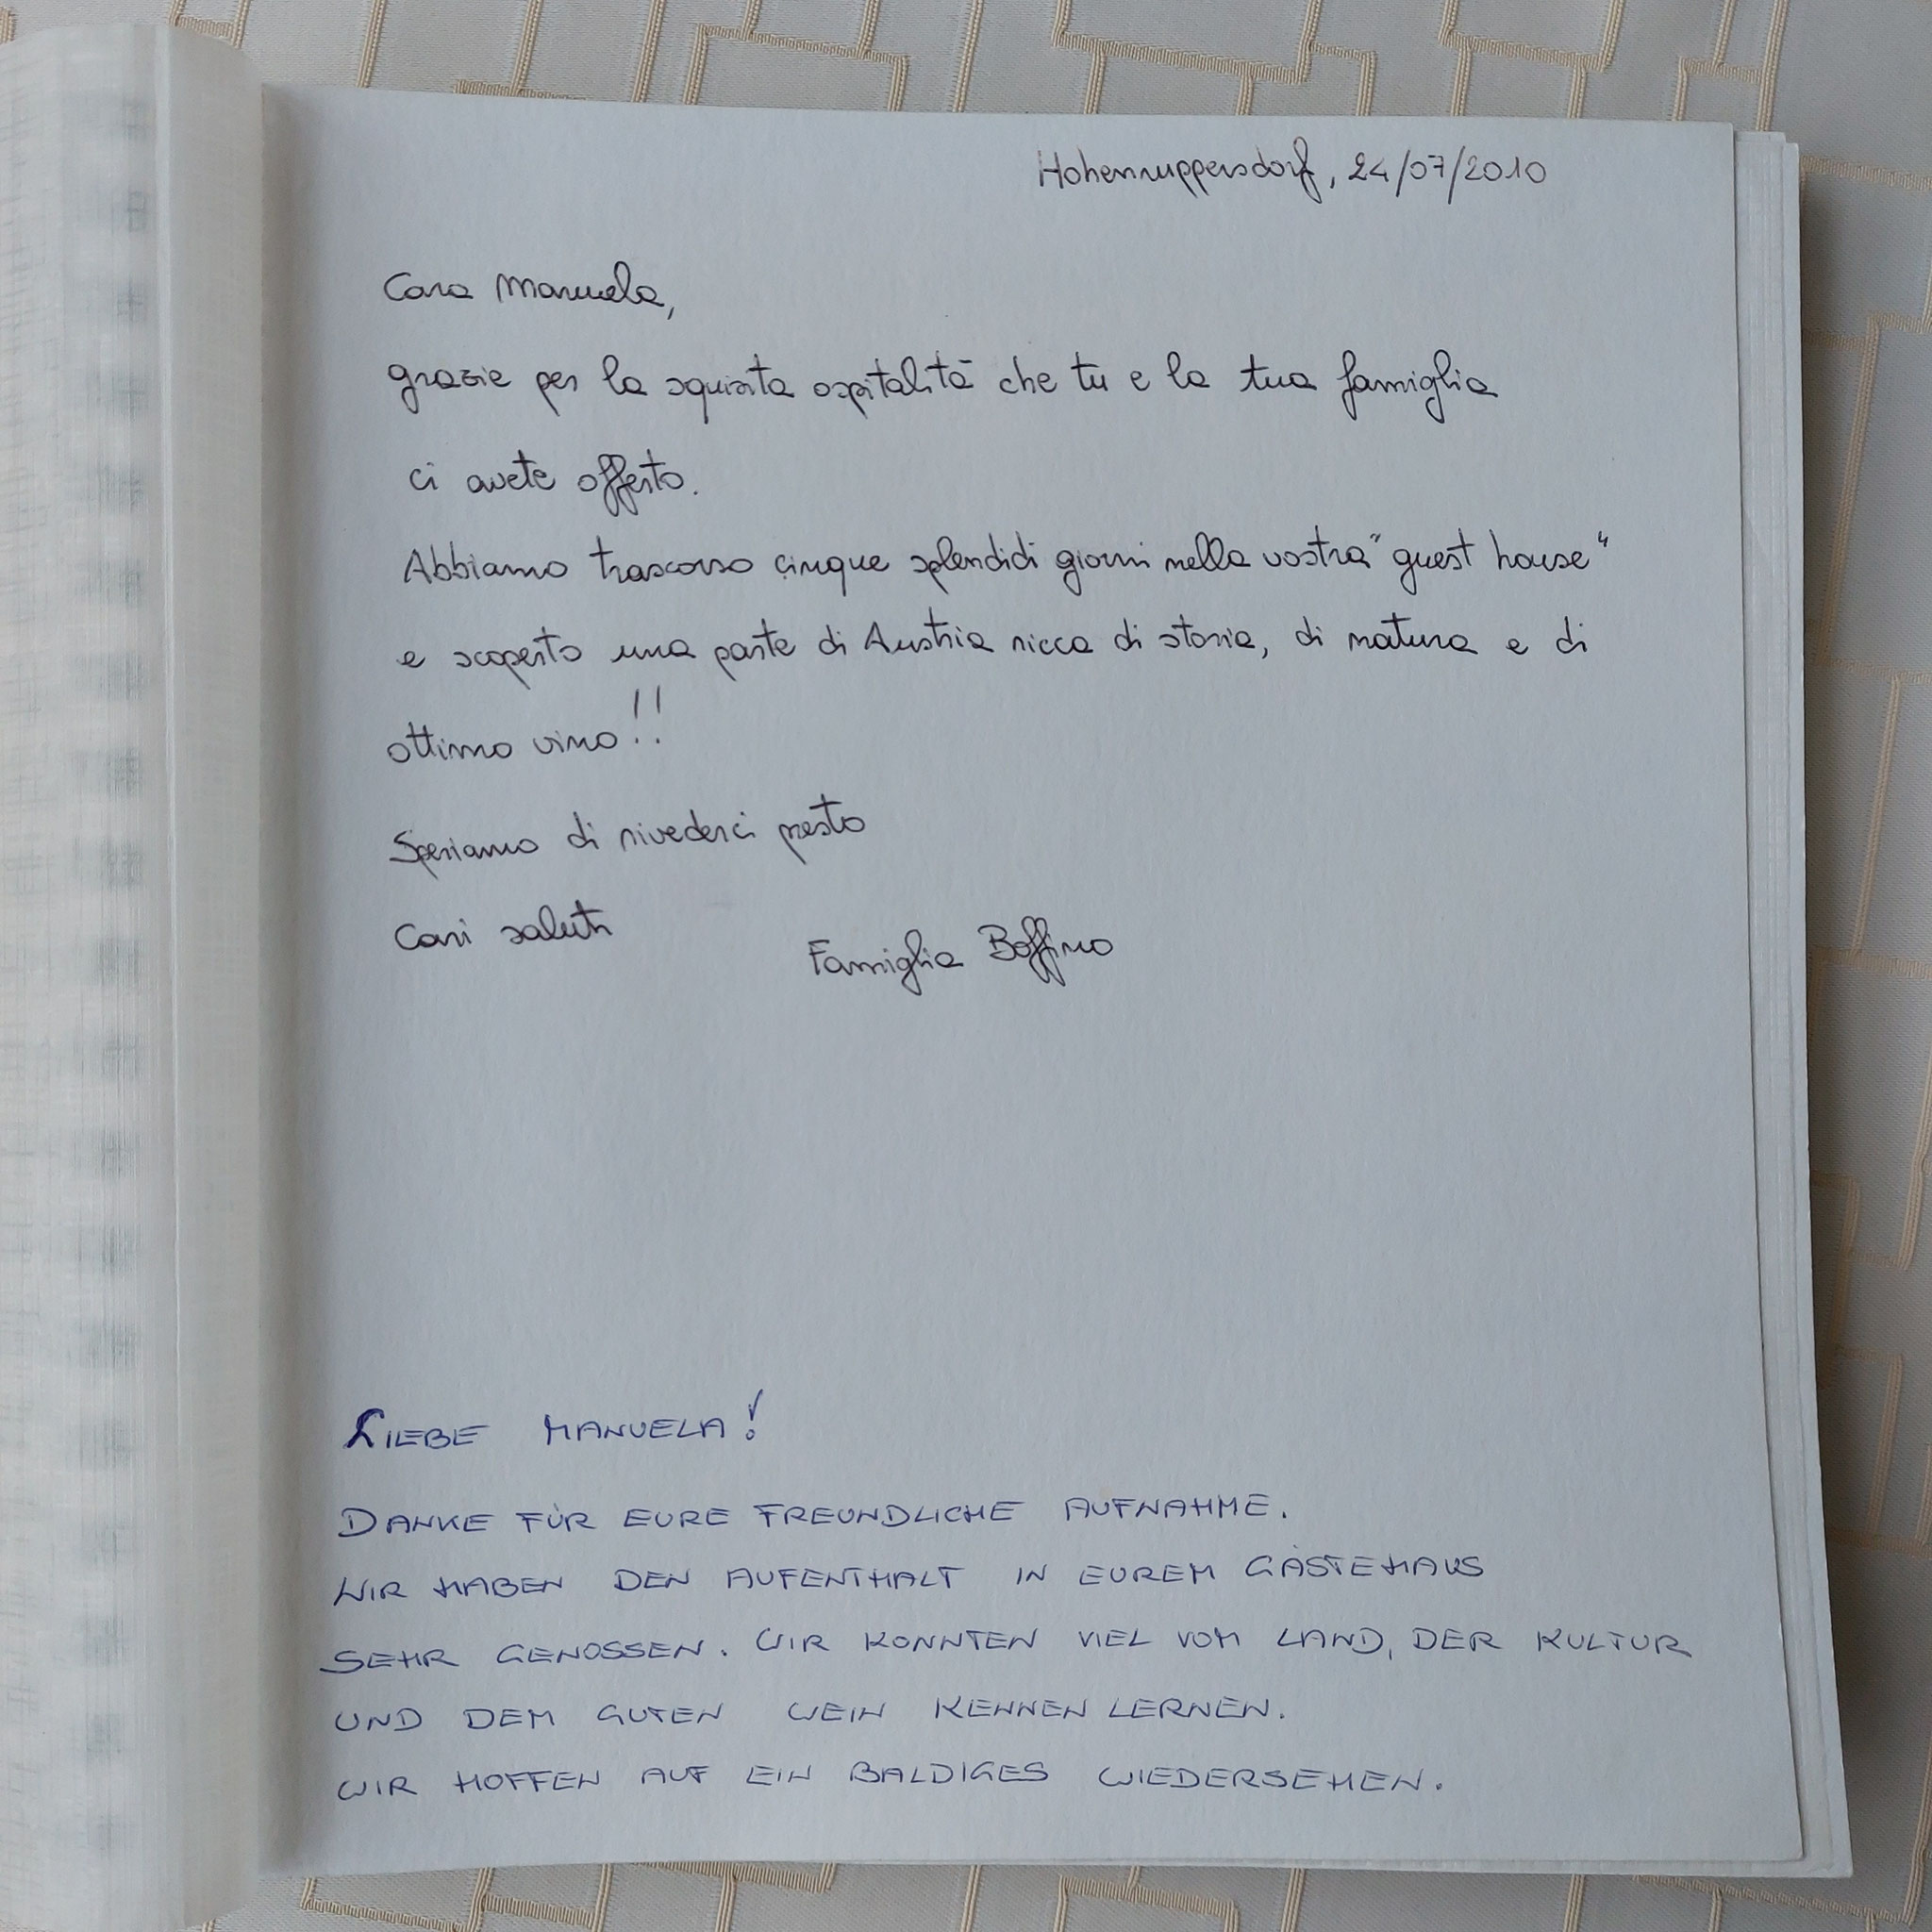 Hohenruppersdorf, 24/07/2010
Cara Manuela,
grazie per la squisita ospitalità che tu e la tua famiglia
ci avete offerto.
Abbiamo trascorso cinque splendidi giorni nella vostra "guest house"
e scoperto una parte di Austria ricca di storia, di natura e di
ottimo vino!!
Speriamo di rivederci presto
Cari saluti
Famiglia Boffino
LIEBE MANUELA!
DANKE FÜR EURE FREUNDLICHE AUFNAHME.
WIR HABEN DEN AUFENTHALT IN EUREM GÄSTEHAUS
SEHR GENOSSEN. WIR KONNTEN VIEL VOM LAND, DER KULTUR
UND DEM GUTEN WEIN KENNEN LERNEN.
WIR HOFFEN AUF EIN BALDIGES WIEDERSEHEN.